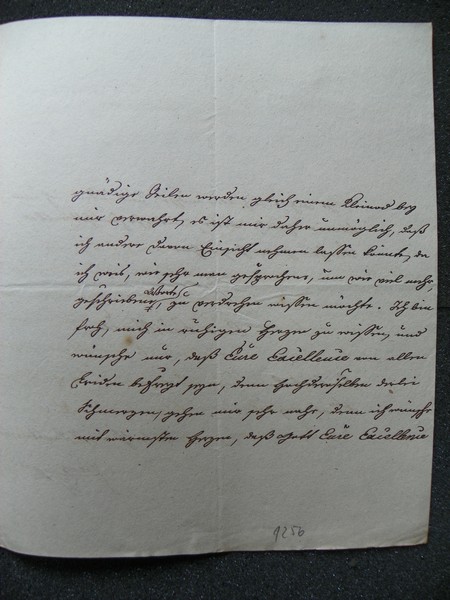 gnädige Zeilen werden gleich einem Kleinod bey
mir verwahrt, es ist mir daher unmöglich, daß
ich andere davon Einsicht nehmen lassen könte, da
ich weis, wie sehr man gesprochene, um wie viel mehr
geschriebene Worte, zu verdrehen wissen möchte. Ich bin
froh, mich im ruhigen Herzen zu wissen, und
wünsche nur, daß Eüre Excellence von allen
Leiden befreyt seyn, denn Hochderselben derlei
Schmerzen, gehen mir sehr nahe, denn ich wünsche
mit wärmsten Herzen, daß Gott Eüre Excellence
1256